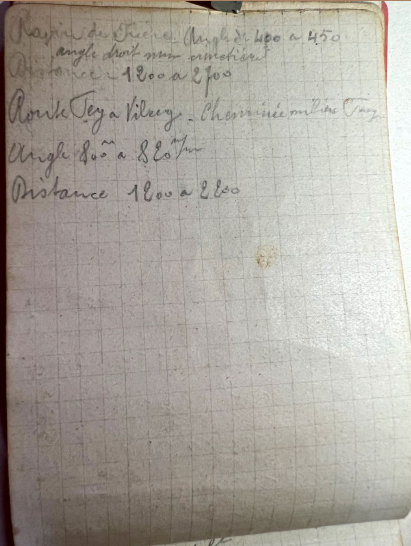 Ravin de Angle de 400 a 450
angle droit mur cimetière
Distance - 1200 a 2700
Route Jeza Vilrey - Cheminée milieu
Angle 800 a 820
Distance 1200 a 2200